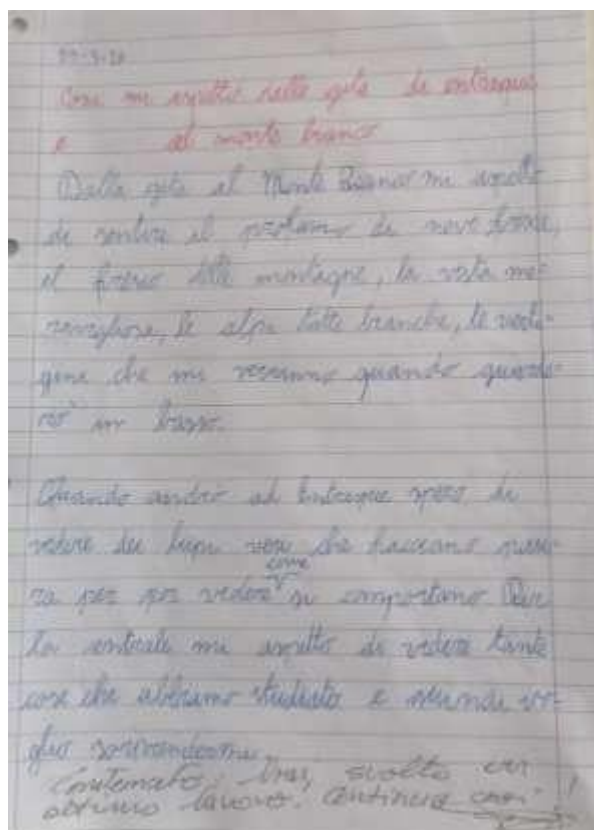 Cosa mi aspetto dalla gita di entraque
e al monte bianco
Dalla gita al Monte Bianco mi aspetto
di sentire il profumo di neve fresca,
il fresco delle montagne, la vista me-
ravigliosa, le alpi tutte bianche, le verti-
gine che mi verranno quando guarde-
rò in basso.
Quando andrò ad Entraque spero di
vedere dei lupi veri che facciano
per poi vedere come si comportano
la centrale mi aspetto di vedere tante
cose che abbiamo studiato e quindi vo-
glio sorprendermi.
Contenuto svolto
ottimo lavoro. Continua così!